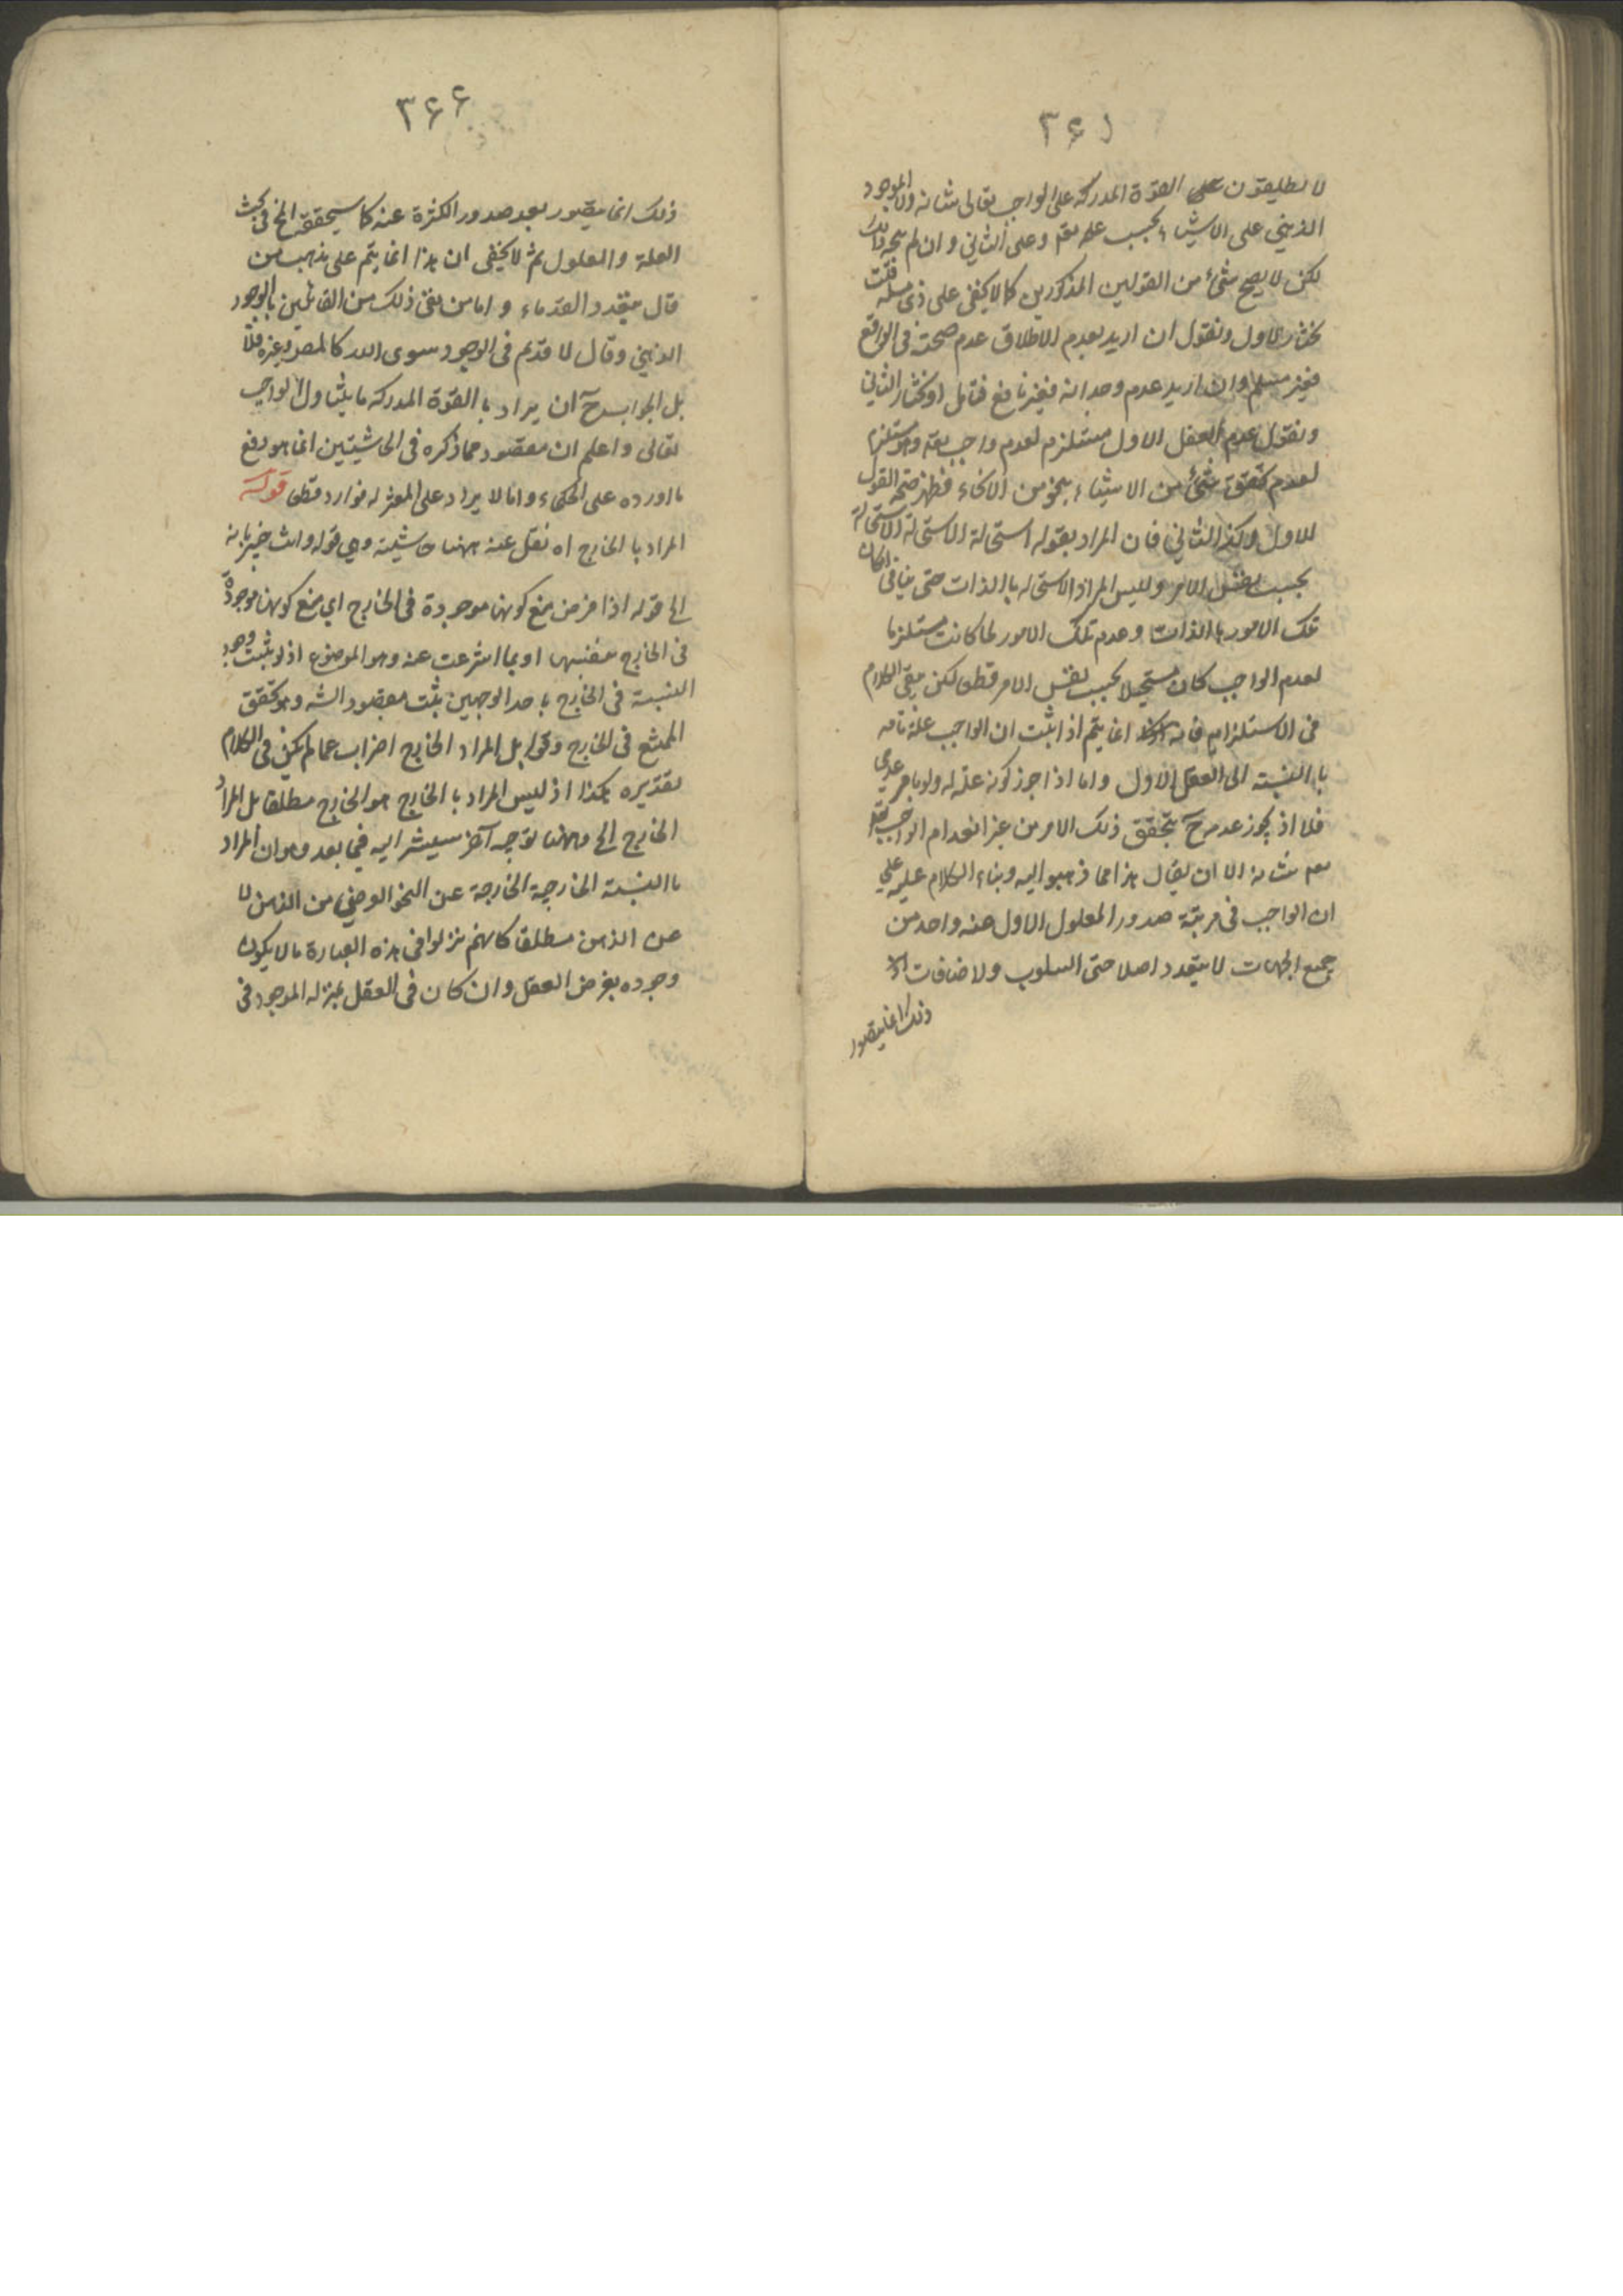 لا يطلقون على القوة المدركة على الواجب تعالى شانه ولا الموجود
الذهني على الاشياء بحسب علمه تعم وعلى الثاني و ان لم يتجه ذلك
لكن لا يصح شئ من القولين المذكورين كما لا يخفى على ذى مسكه قلت
نختار الاول ونقول ان اريد بعدم الاطلاق عدم صحته فى الواقع
فغير مسلم وان اريد عدم وجدانه فغير نافع فتامل او نختار الثاني
ونقول عدم العقل الاول مستلزم لعدم واجب تعه وهو مستلزم
لعدم تحقق شئ من الاشياء بنحو من الانحاء فظهر صحة القول
الاول وكذا الثاني فان المراد بقوله استحالة الاستحالة الاستحالة
بحسب نفس الامر وليس المراد الاستحاله باالذات حتى ينافى امكان
تلك الامور باالذات وعدم تلك الامور لما كانت مستلزما
لعدم الواجب كان مستحيلا بحسب نفس الامر قطعا لكن بقى الكلام
فى الاستلزام فانه انما يتم اذا ثبت ان الواجب علة تامه
باالنسبته الى العقل الاول واما اذا جوز كونه علة له ولو بامر عدمى
فلا اذ يجوز عدمه ح بتحقق ذلك الامر من غير انعدام الواجب تعه
شانه الا ان يقال هذا مما ذهبوا اليه وبناء الكلام عليه على
ان الواجب فى مرتبة صدور المعلول الاول عنه واحد من
جميع الجهات لا يتعدد اصلا حتى السلوب ولاضافات اذ
ذلك انما يتصور
٣٦٦
ذلك انما يتصور بعد صدور الكثرة عنه كما سيحققه الخ فى بحث
العلة والمعلول ثم لا يخفى ان هذا انما يتم على مذهب من
قال بتعدد القدماء و اما من نفى ذلك من القائلين بالوجود
الذهني وقال لا قديم فى الوجود سوى الله كالمصر وغيره فلا
بل الجواب ح آن يراد با القوة المدركه ما يتناول الواجب
تعالى و اعلم ان مقصود مما ذكره فى الحاشيتين انما هو دفع
ما اورده على الحكماء واما لا يراد على المعتزله فوارد قطعا قوله
المراد با الخارج اه نقل عنه ههنا حاشيته وهي قوله وانت خبير بانه
الى قوله اذا فرض منع كونها موجودة فى الخارج اي منع كونها موجودة
فى الخارج بنفسها او بما انتزعت عنه وهو الموضوع اذ لو ثبت وجود
النسبته فى الخارج باحد الوجهين ثبت مقصود الشه وهو تحقق
الممتنع فى الخارج وقوله بل المراد الخارج اضراب عما لم يكن فى الكلام
تقديره هكذا اذ ليس المراد با الخارج هو الخارج مطلقا بل المراد
الخارج الى وههنا توجيه آخر سيشر اليه فيما بعد وهو ان المراد
باالنسبته الخارجية الخارجة عن النحو الفرضي من الذهن لا
عن الذهن مطلقا كانهم نزلوا فى هذه العبارة ما لا يكون
وجوده بفرض العقل وان كان فى العقل بمنزله الموجود فى